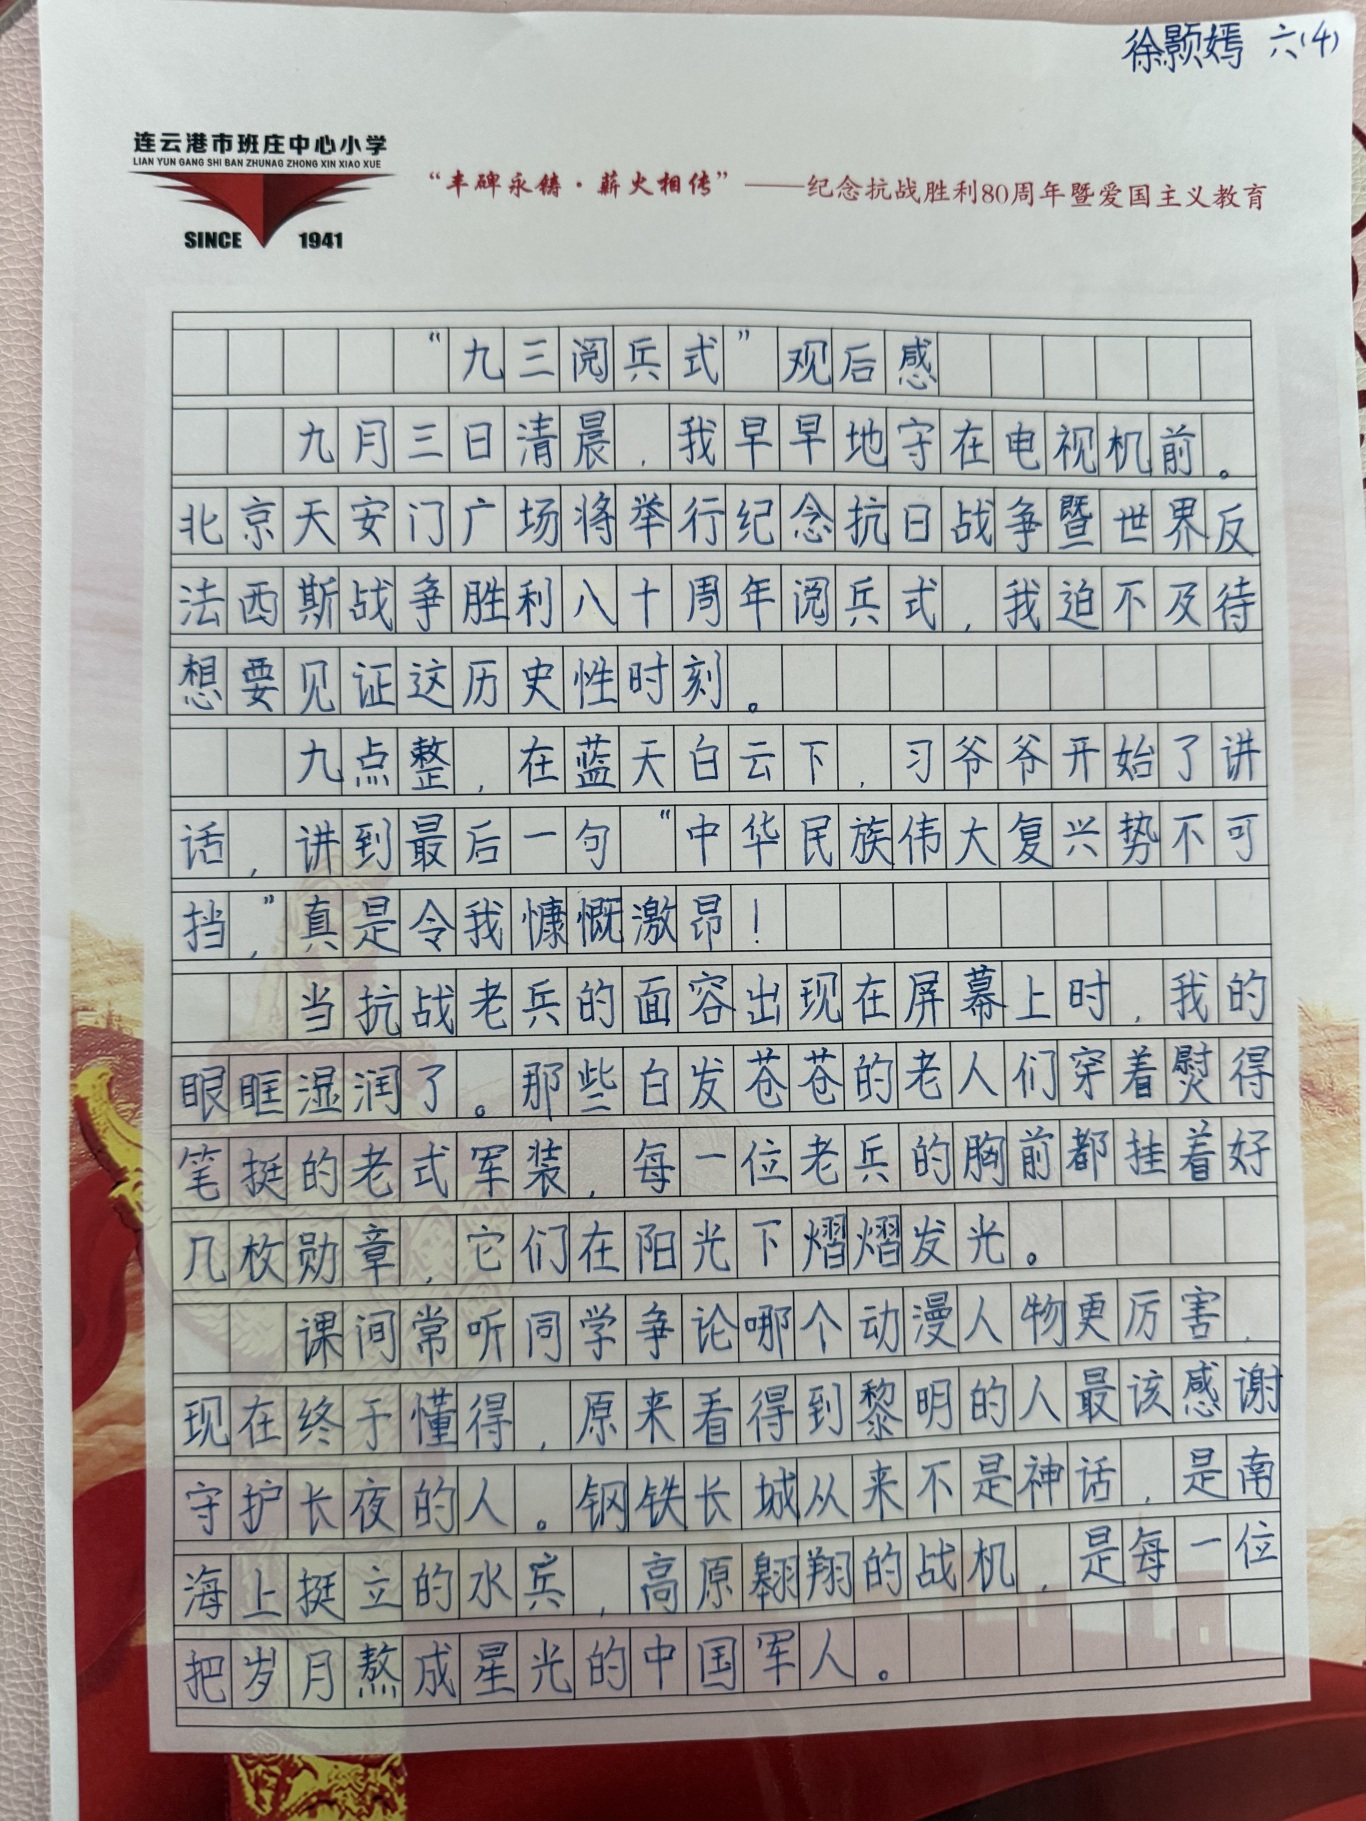 徐颢嫣 六(4)
连云港市班庄中心小学
LIAN YUN GANG SHI BAN ZHUNAG ZHONG XIN XIAO XUE
SINCE 1941
“丰碑永铸·薪火相传”——纪念抗战胜利80周年暨爱国主义教育
“九三阅兵式”观后感
九月三日清晨,我早早地守在电视机前。
北京天安门广场将举行纪念抗日战争暨世界反
法西斯战争胜利八十周年阅兵式,我迫不及待
想要见证这历史性时刻。
九点整,在蓝天白云下,习爷爷开始了讲
话,讲到最后一句“中华民族伟大复兴势不可
挡,”真是令我慷慨激昂!
当抗战老兵的面容出现在屏幕上时,我的
眼眶湿润了。那些白发苍苍的老人们穿着熨得
笔挺的老式军装,每一位老兵的胸前都挂着好
几枚勋章,它们在阳光下熠熠发光。
课间常听同学争论哪个动漫人物更厉害,
现在终于懂得,原来看得到黎明的人最该感谢
守护长夜的人。钢铁长城从来不是神话,是南
海上挺立的水兵,高原翱翔的战机,是每一位
把岁月熬成星光的中国军人。